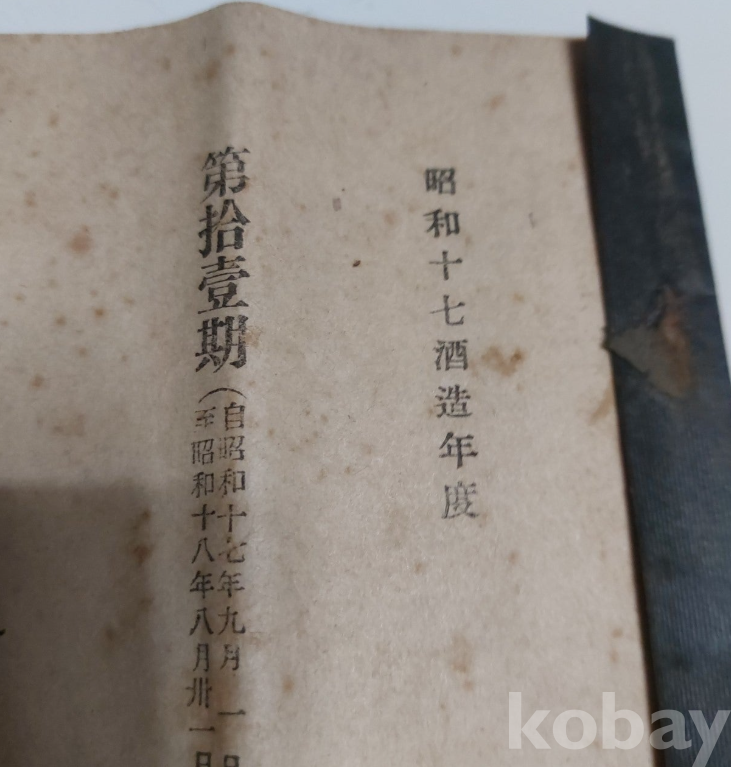 昭和十七酒造年度
第拾壹期(自昭和十七年九月一日
至昭和十八年八月卅一日
kobay